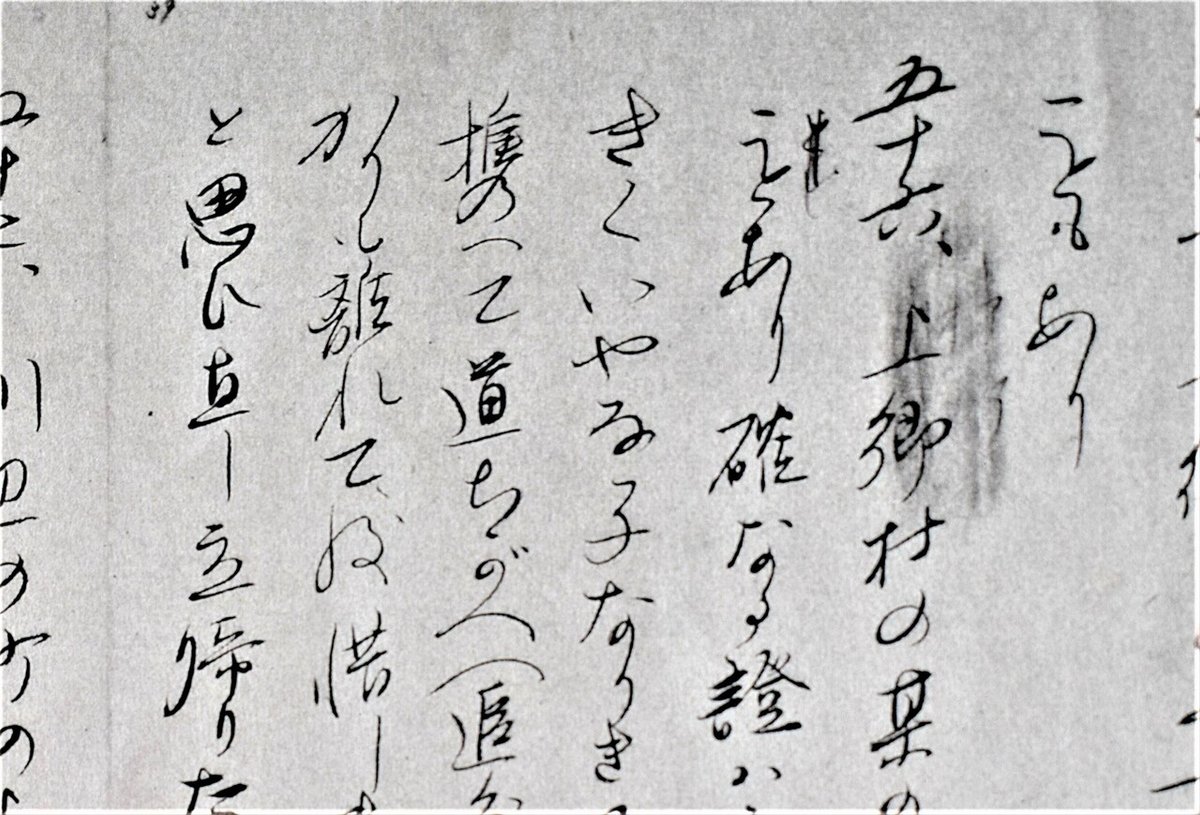 こともあり
五十六、上郷村の某の
ことあり確なる證ハ
きくいやな子なりき
携へて道ちがへ(追分
かりも離れて後惜し
と思ひ直し立帰りた
五十七、川岸の砂の